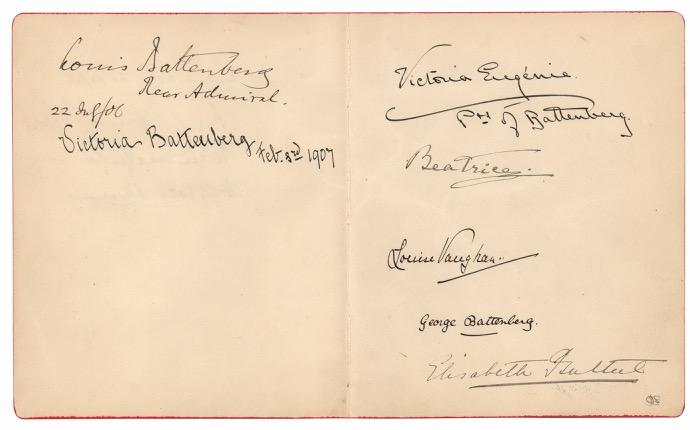 Louis Battenberg
Rear Admiral.
22 July/06
Victoria Battenberg
Feb. 3rd 1907
Victoria Eugénie.
Pss of Battenberg.
Beatrice.
Louise Vaughan.
George Battenberg.
Elisabeth